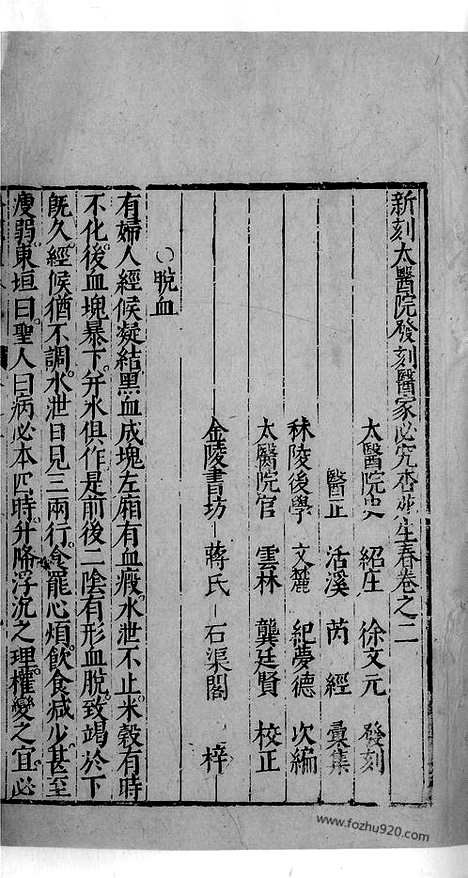 新刻太醫院發刻醫家必究杏苑生春卷之二
太醫院吏 紹庄 徐文元 發刻
醫正 活溪 芮經 彙集
秣陵後學 文麓 紀夢德 次編
太醫院官 雲林 龔廷賢 校正
金陵書坊 蔣氏 石渠閣 梓
○脫血
有婦人經候凝結黑血成塊左廂有血瘕水泄不止米穀有時
不化後血塊暴下并水俱作是前後二陰有形血脫致竭於下
既久經候猶不調水泄日見三兩行食罷心煩飲食減少甚至
瘦弱東垣曰聖人曰病必本四時升降浮沉之理權變之宜必
www.fozhu920.com